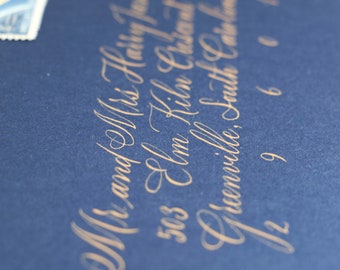 Mr. and Mrs. Harry
503 Elm Kiln Crescent
Greenville, South Carolina
2 9 6 0